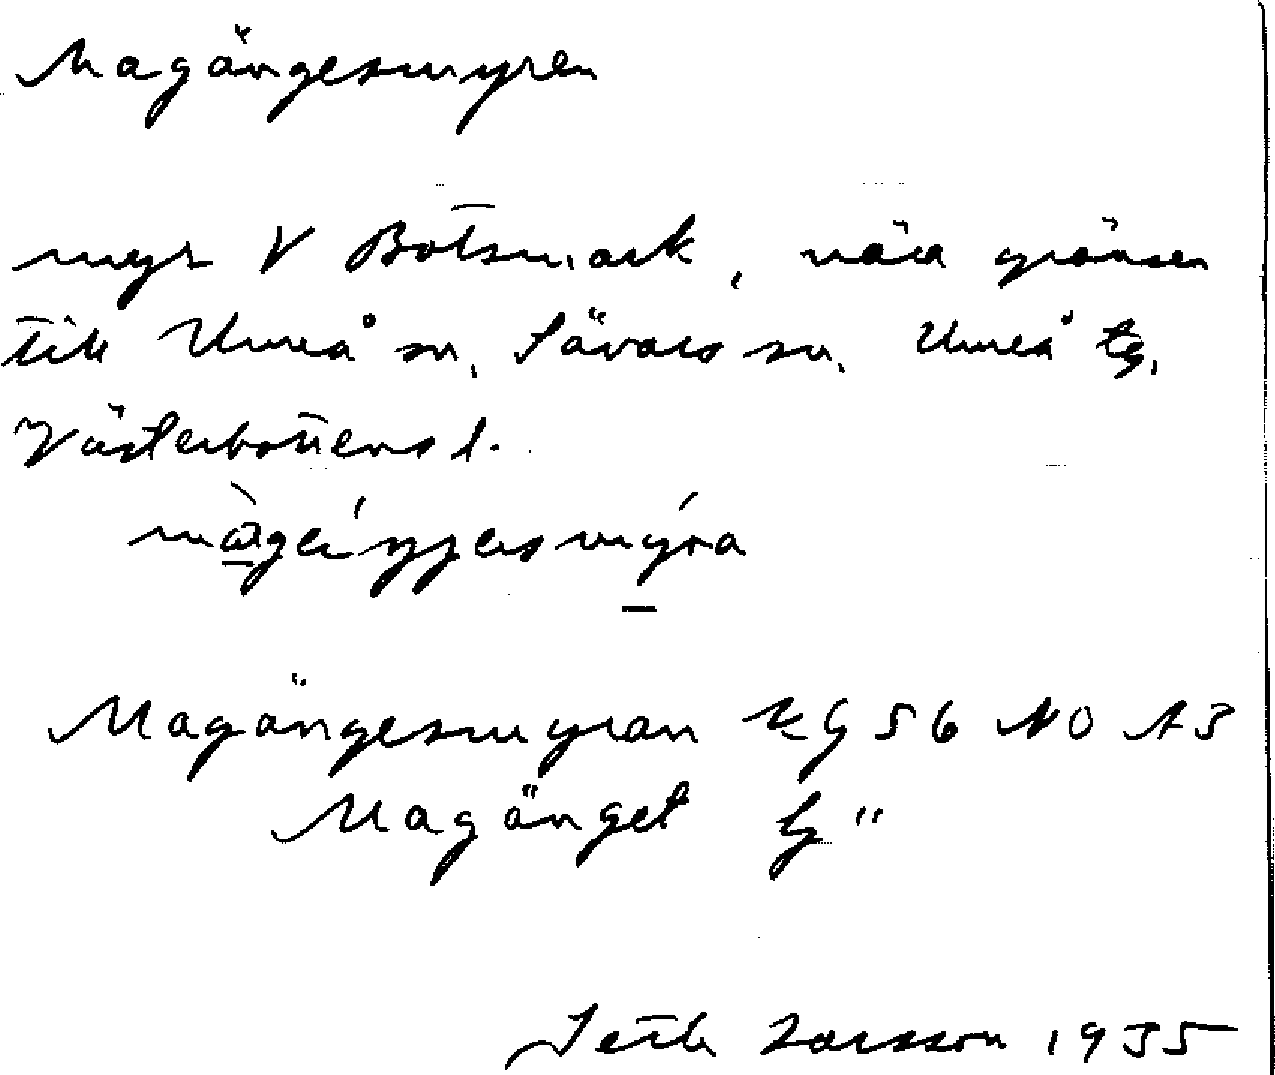 Magängesmyren
myr V Botsmark, nära gränsen
till Umeå sn, Sävars sn, Umeå tg,
Västerbottens l.
Magängesmyran EG 56 NO A3
Magänget G "
Seth Larsson 1935